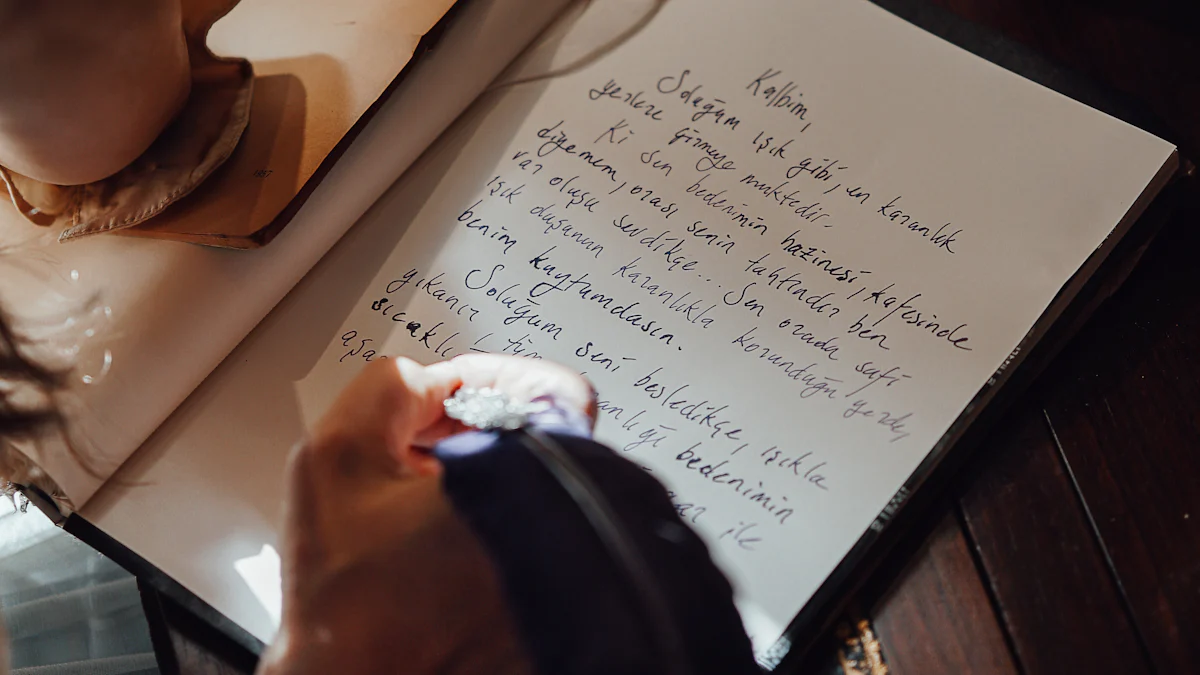 Kalbim,
Soluğum ışık gibi, en karanlık
yerlere girmeye muktedir.
Ki sen bedenimin hazinesi, kafesinde
diyemem, orası senin tahtındır ben
var oluşu sevdikçe... Sen orada safi
ışık duşunun karanlıkla korunduğu yerde,
benim kuytumdasın.
Soluğum seni besledikçe, ışıkla
yıkanır tüm bedenimin
sıcaklı ile
1897